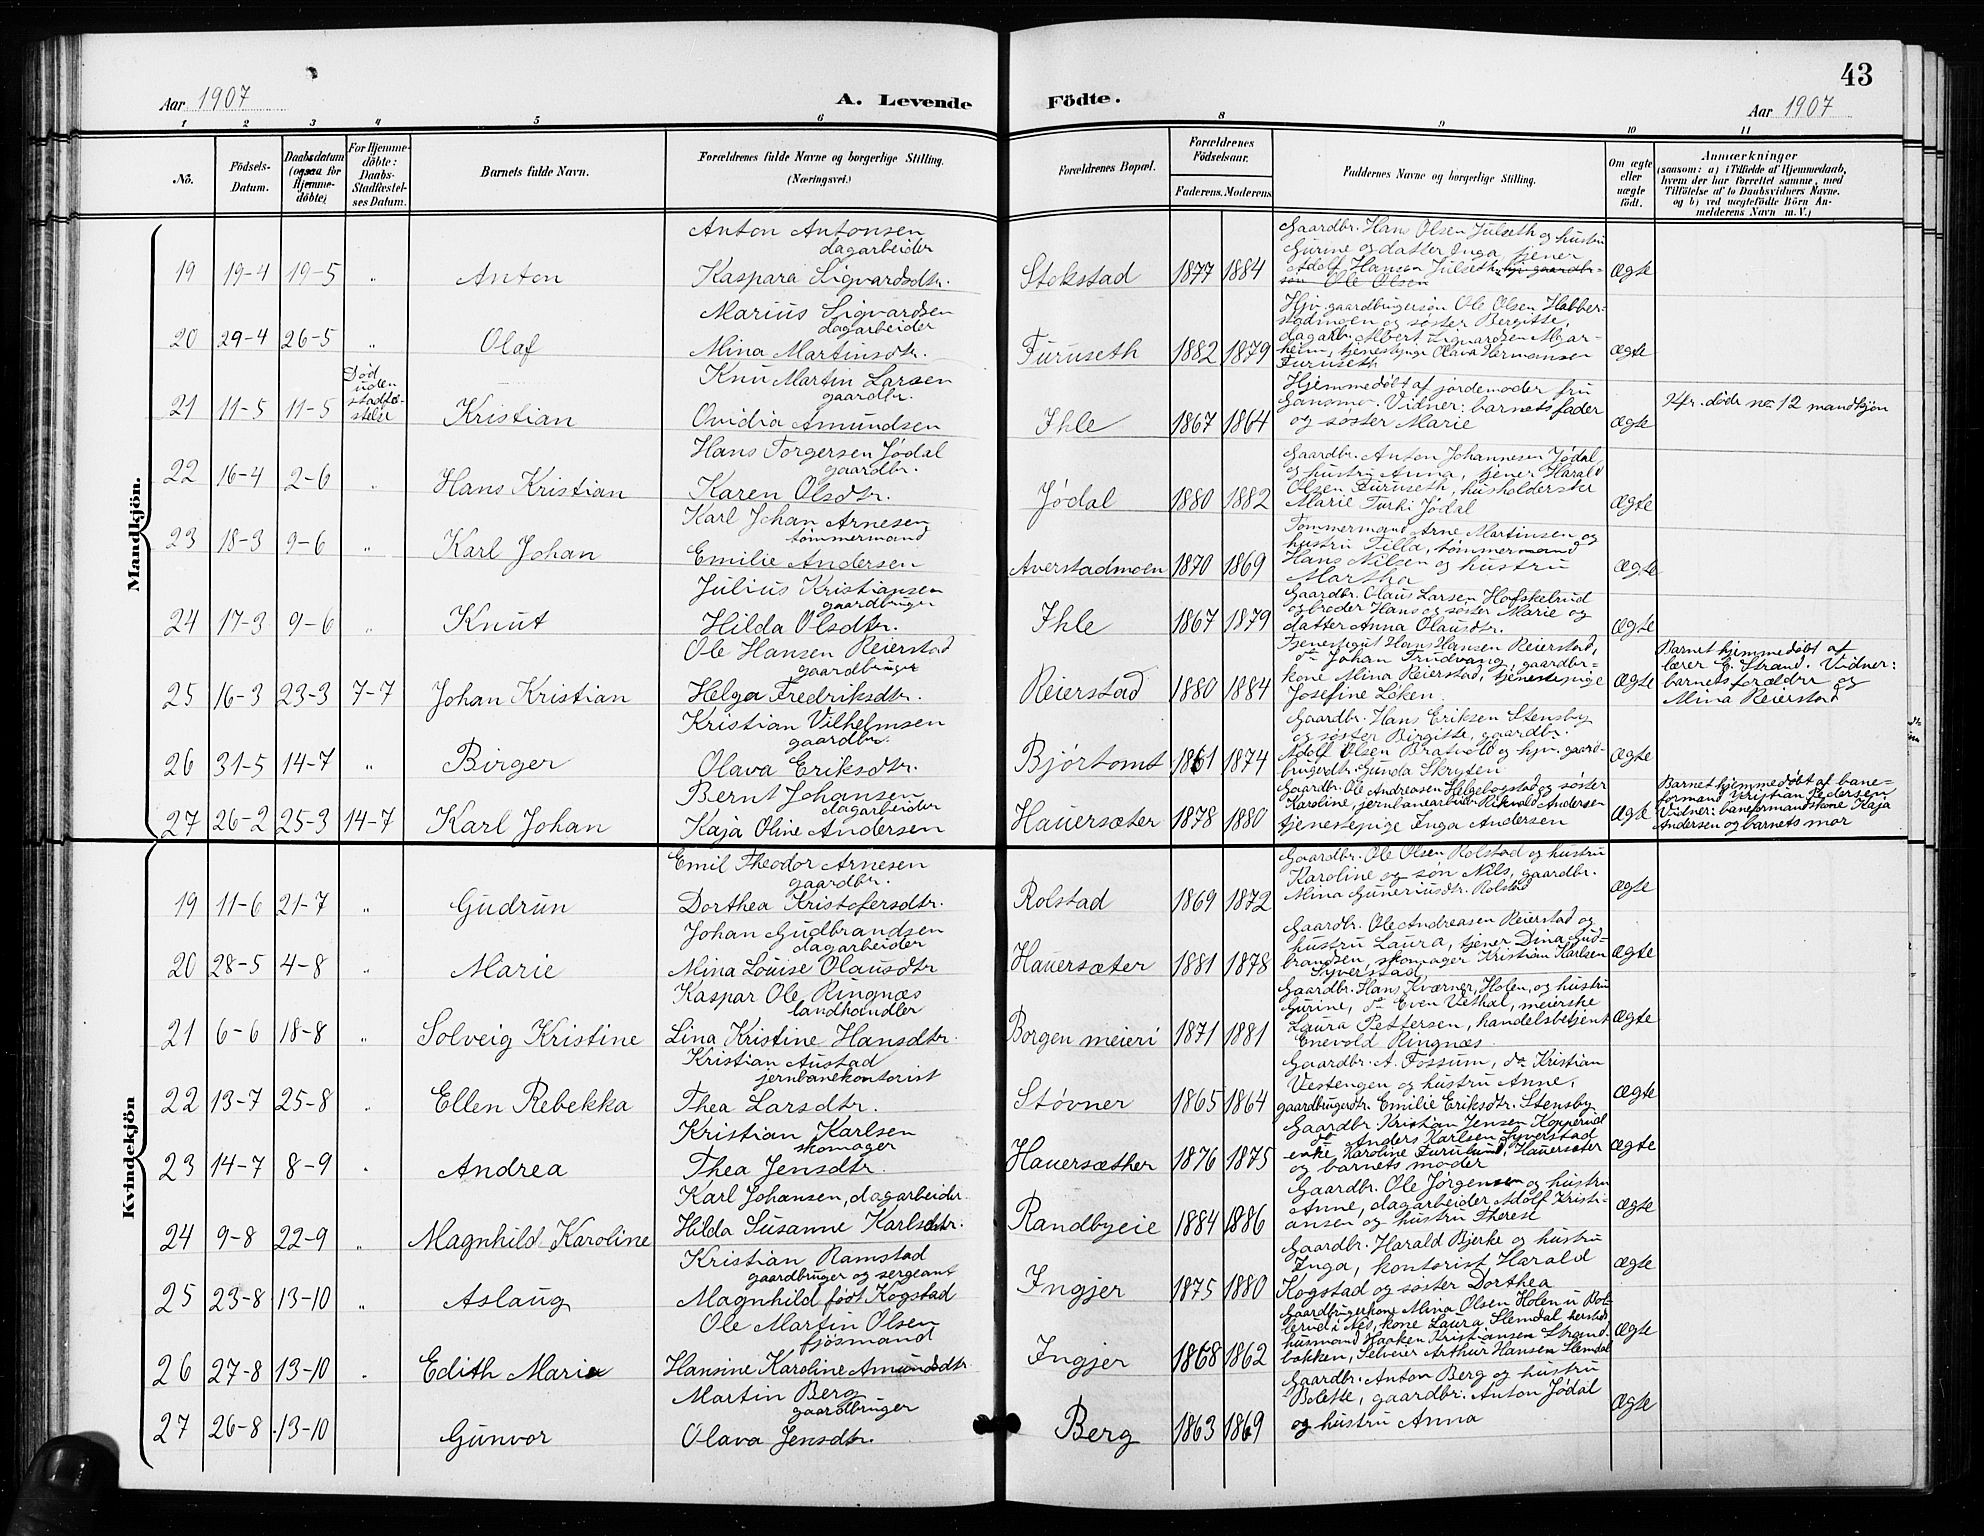 43
Aar 1907
A. Levende Födte.
Aar 1907
1 2 3 4 5 6 8 9 10 11
No.
Födsels-
Datum.
Daabsdatum
(ogsaa for
Hjemme-
döbte)
For Hjemme-
döbte:
Daabs-
Stadfæstel-
ses Datum.
Barnets fulde Navn.
Forældrenes fulde Navne og borgerlige Stilling.
(Næringsvei.)
Forældrenes Bopæl.
Forældrenes
Födselsaar.
Faderens. Moderens.
Faddernes Navne og borgerlige Stilling.
Om ægte
eller
uægte
födt.
Anmærkninger
(saasom: a) i Tilfælde af Hjemmedaab,
hvem der har forrettet samme, med
Tilföielse af to Daabsvidners Navne.
og b) ved uægtefödte Börn An-
melderens Navn m. V.)
Mandkjön.
Anton Antonsen
dagarbeider
19 19-4 19-5 " Anton
Kaspara Sigvardsdtr.
Stokstad 1877 1884
Gaardbr. Hans Olsen Julseth og hustru
Gurine og datter Inga tjener
Adolf Hansen Julseth, hjv. gaardbr-
søn Ole Olsen
Ægte
Marius Sigvardsen
dagarbeider
20 29-4 26-5 " Olaf
Mina Martinsdtr.
Furuseth 1882 1879
Hjv. gaardbrugersøn Ole Olsen Habber-
stadengen og søster Bergitte,
dagarbr. Albert Sigvardsen Mar-
heim, tjenestepige Olava Hermansen
Furuseth
Ægte
Knu Martin Larsen
gaardbr.
21 11-5 11-5
Død
uden
stadfæ-
stelse
Kristian
Ovidia Amundsen
Ihle 1867 1864
Hjemmedøbt af jordemoder fru
Gansmo. Vidner: barnets fader
og søster Marie
Ægte
Kfr. døde no 12 mandkjøn
Hans Torgersen Jødal
gaardbr.
22 16-4 2-6 " Hans Kristian
Karen Olsdtr.
Jødal 1880 1882
Gaardbr. Anton Johannesen Jødal
og hustru Anna, tjener Harald
Olsen Furuseth, husholderske
Marie Turk: Jødal
Ægte
Karl Johan Arnesen
tømmermand
23 18-3 9-6 " Karl Johan
Emilie Andersen
Averstadmoen 1870 1869
Tømmermand Arne Martinsen og
hustru Tilla, tømmermand
Hans Nilsen og hustru
Martha
Ægte
Julius Kristiansen
gaardbruger
24 17-3 9-6 " Knut
Hilda Olsdtr.
Ihle 1867 1879
Gaardbr. Olaus Larsen Hofskelrud
og broder Hans og søster Marie og
datter Anna Olausdtr.
Ægte
Ole Hansen Reierstad
gaardbruger
25 16-3 23-3 7-7 Johan Kristian
Helga Fredriksdtr.
Reierstad 1880 1884
Tjenestegut Hans Hansen Reierstad,
do Johan Trudvang, gaardbr-
kone Mina Reierstad, tjenestepige
Josefine Løken
Ægte
Barnet hjemmedøbt af
lærer E. Strand. Vidner:
barnets forældre og
Mina Reierstad
Kristian Vilhelmsen
gaardbr.
26 31-5 14-7 " Birger
Olava Eriksdtr.
Bjørtomt 1861 1874
Gaardbr. Hans Eriksen Stensby
og søster Birgitte, gaardbr.
Adolf Olsen Bratvold og hjv. gaard-
brugerdtr. Gunda Skryten
Ægte
Bernt Johansen
dagarbeider
27 26-2 25-3 14-7 Karl Johan
Kaja Oline Andersen
Hauersæter 1878 1880
Gaardbr. Ole Andreasen Helgebostad og søster
Karoline, jernbanearbeider Rikvald Andersen
tjenestepige Inga Andersen
Ægte
Barnet hjemmedøbt af bane-
formand Kristian Pedersen
Vidner: baneformandskone Kaja
Andersen og barnets mor
Kvindekjön
Emil Theodor Arnesen
gaardbr.
19 11-6 21-7 " Gudrun
Dorthea Kristofersdtr.
Rolstad 1869 1872
Gaardbr. Ole Olsen Rolstad og hustru
Karoline og søn Nils, gaardbr.
Mina Guneriusdtr. Rolstad
Ægte
Johan Gudbrandsen
dagarbeider
20 28-5 4-8 " Marie
Mina Louise Olausdtr
Hauersæter 1881 1878
Gaardbr. Ole Andreasen Reierstad og
hustru Laura, tjener Dina Gud-
brandsen, skomager Kristian Karlsen
Syverstad
Ægte
Kaspar Ole Ringnæs
landhandler
21 6-6 18-8 " Solveig Kristine
Lina Kristine Hansdtr.
Borgen meieri 1871 1881
Gaardbr. Hans Kværner, Holen, og hustru
Gurine, do Even Viethal, meierske
Laura Pettersen, handelsbetjent
Enevold Ringnæs
Ægte
Kristian Austad
jernbanekontorist
22 13-7 25-8 " Ellen Rebekka
Thea Larsdtr.
Støvner 1865 1864
Gaardbr. A. Fossum, do Kristian
Vestengen og hustru Anne,
gaardbrugerdtr. Emilie Eriksdtr. Stensby
Ægte
Kristian Karlsen
skomager
23 14-7 8-9 " Andrea
Thea Jensdtr.
Hauersæther 1876 1875
Gaardbr Kristian Jensen Kopperud
do Anders Karlsen Syverstad
enke Karoline Furulund, Hauersæter
og barnets moder
Ægte
Karl Johansen, dagarbeider.
24 9-8 22-9 " Magnhild Karoline
Hilda Susanne Karlsdtr.
Randbyeie 1884 1886
Gaardbr. Ole Jørgensen og hustru
Anne, dagarbeider Adolf Kristi-
ansen og hustru Therese
Ægte
Kristian Ramstad
gaardbruger og sergeant
25 23-8 13-10 " Aslaug
Magnhild født Kogstad
Ingjer 1875 1880
Gaardbr. Harald Bjerke og hustru
Inga, kontorist Harald
Kogstad og søster Dorthea
Ægte
Ole Martin Olsen
fjøsmand
26 27-8 13-10 " Edith Marie
Hansine Karoline Amundsdtr.
Ingjer 1868 1862
Gaardbrugerkone Mina Olsen Holen u Bol-
lerud i Nes, kone Laura Slemdal hersteds
husmand Haaken Kristiansen Strand-
bakken, Selveier Arthur Hansen Slemdal
Ægte
Martin Berg
gaardbruger
27 26-8 13-10 Gunvor
Olava Jensdtr.
Berg 1863 1869
Gaardbr. Anton Berg og hustru
Bolette, gaardbr. Anton Jødal
og hustru Anna
Ægte